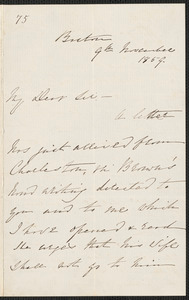 75
Boston
9th November
1859
My Dear Sir —
A letter
Has just arrived from
Charlestown in Brown's
hand writing directed to
you and to me which
I have opened & read
He urges that his wife
shall not go to him